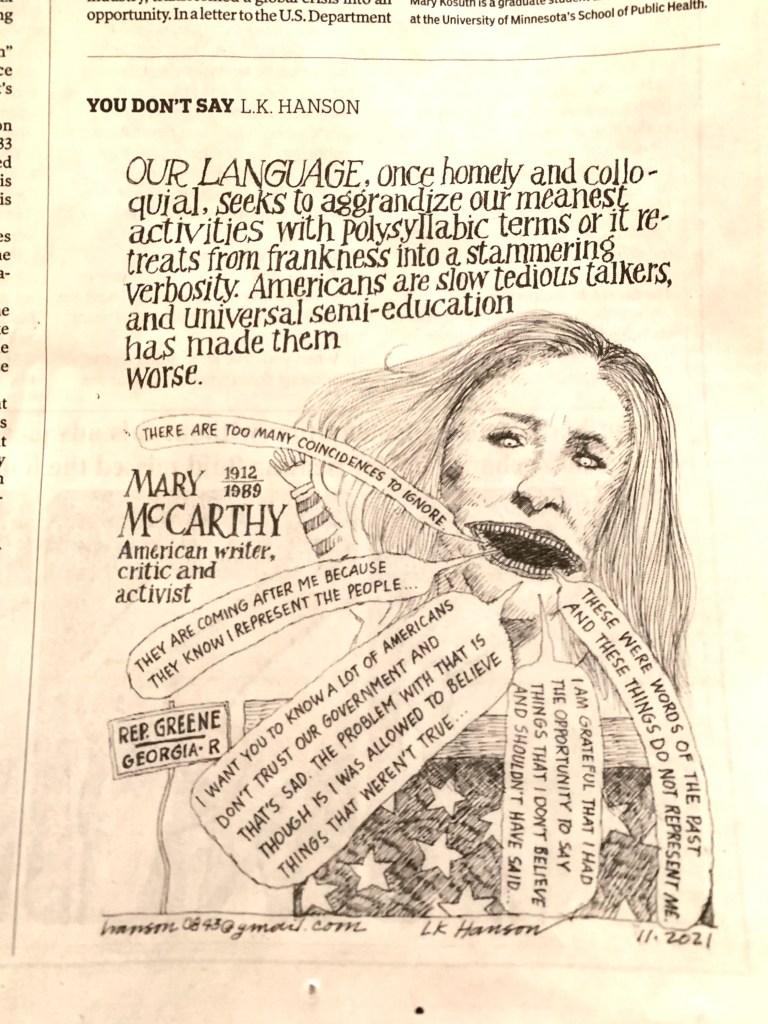 opportunity. In a letter to the U.S. Department
Mary Kosuth is a graduate student
at the University of Minnesota's School of Public Health.
YOU DON'T SAY L.K. HANSON
OUR LANGUAGE, once homely and collo-
quial, seeks to aggrandize our meanest
activities with polysyllabic terms or it re-
treats from frankness into a stammering
verbosity. Americans are slow tedious talkers,
and universal semi-education
has made them
worse.
THERE ARE TOO MANY COINCIDENCES TO IGNORE
MARY 1912
1989
McCARTHY
American writer,
critic and
activist
THEY ARE COMING AFTER ME BECAUSE
THEY KNOW I REPRESENT THE PEOPLE...
REP. GREENE
GEORGIA-R
I WANT YOU TO KNOW A LOT OF AMERICANS
DON'T TRUST OUR GOVERNMENT AND
THAT'S SAD. THE PROBLEM WITH THAT IS
THOUGH IS I WAS ALLOWED TO BELIEVE
THINGS THAT WEREN'T TRUE...
I AM GRATEFUL THAT I HAD
THE OPPORTUNITY TO SAY
THINGS THAT I DON'T BELIEVE
AND SHOULDN'T HAVE SAID...
THESE WERE WORDS OF THE PAST
AND THESE THINGS DO NOT REPRESENT ME.
hanson0843@gmail.com LK Hanson 11.2021